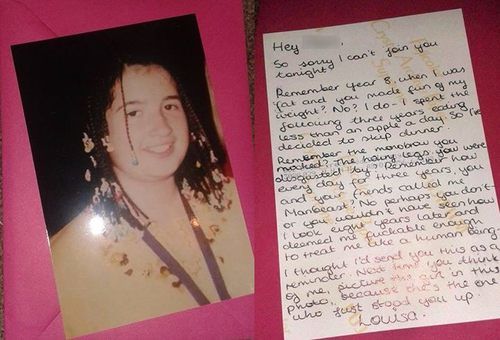 Hey ,
So sorry I can't join you
tonight.
Remember year 8, when I was
fat and you made fun of my
weight? No? I do - I spent the
following three years eating
less than an apple a day. So I've
decided to skip dinner.
Remember the monobrow you
mocked? The hairy legs you were
disgusted by? Remember how
every day for three years, you
and your friends called me
Manbeast? No perhaps you don't
or you wouldn't have seen how
I look eight years later and
deemed me fuckable enough
to treat me like a human being.
I thought I'd send you this as a
reminder. Next time you think
of me, picture the girl in this
photo, because she's the one
who just stood you up.
Louisa.